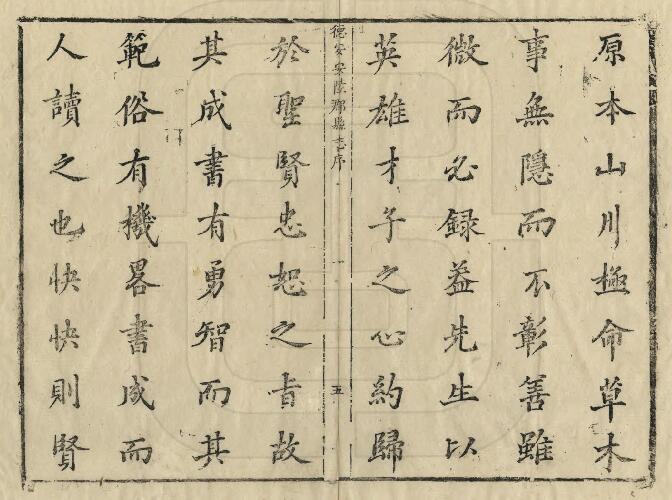 原本山川極命草木
事無隱而不彰善雖
微而必録蓋先生以
英雄才子之心約歸
德安安陸郡縣志序
一
五
於聖賢忠恕之旨故
其成書有勇智而其
範俗有機畧書成而
人讀之也快快則賢